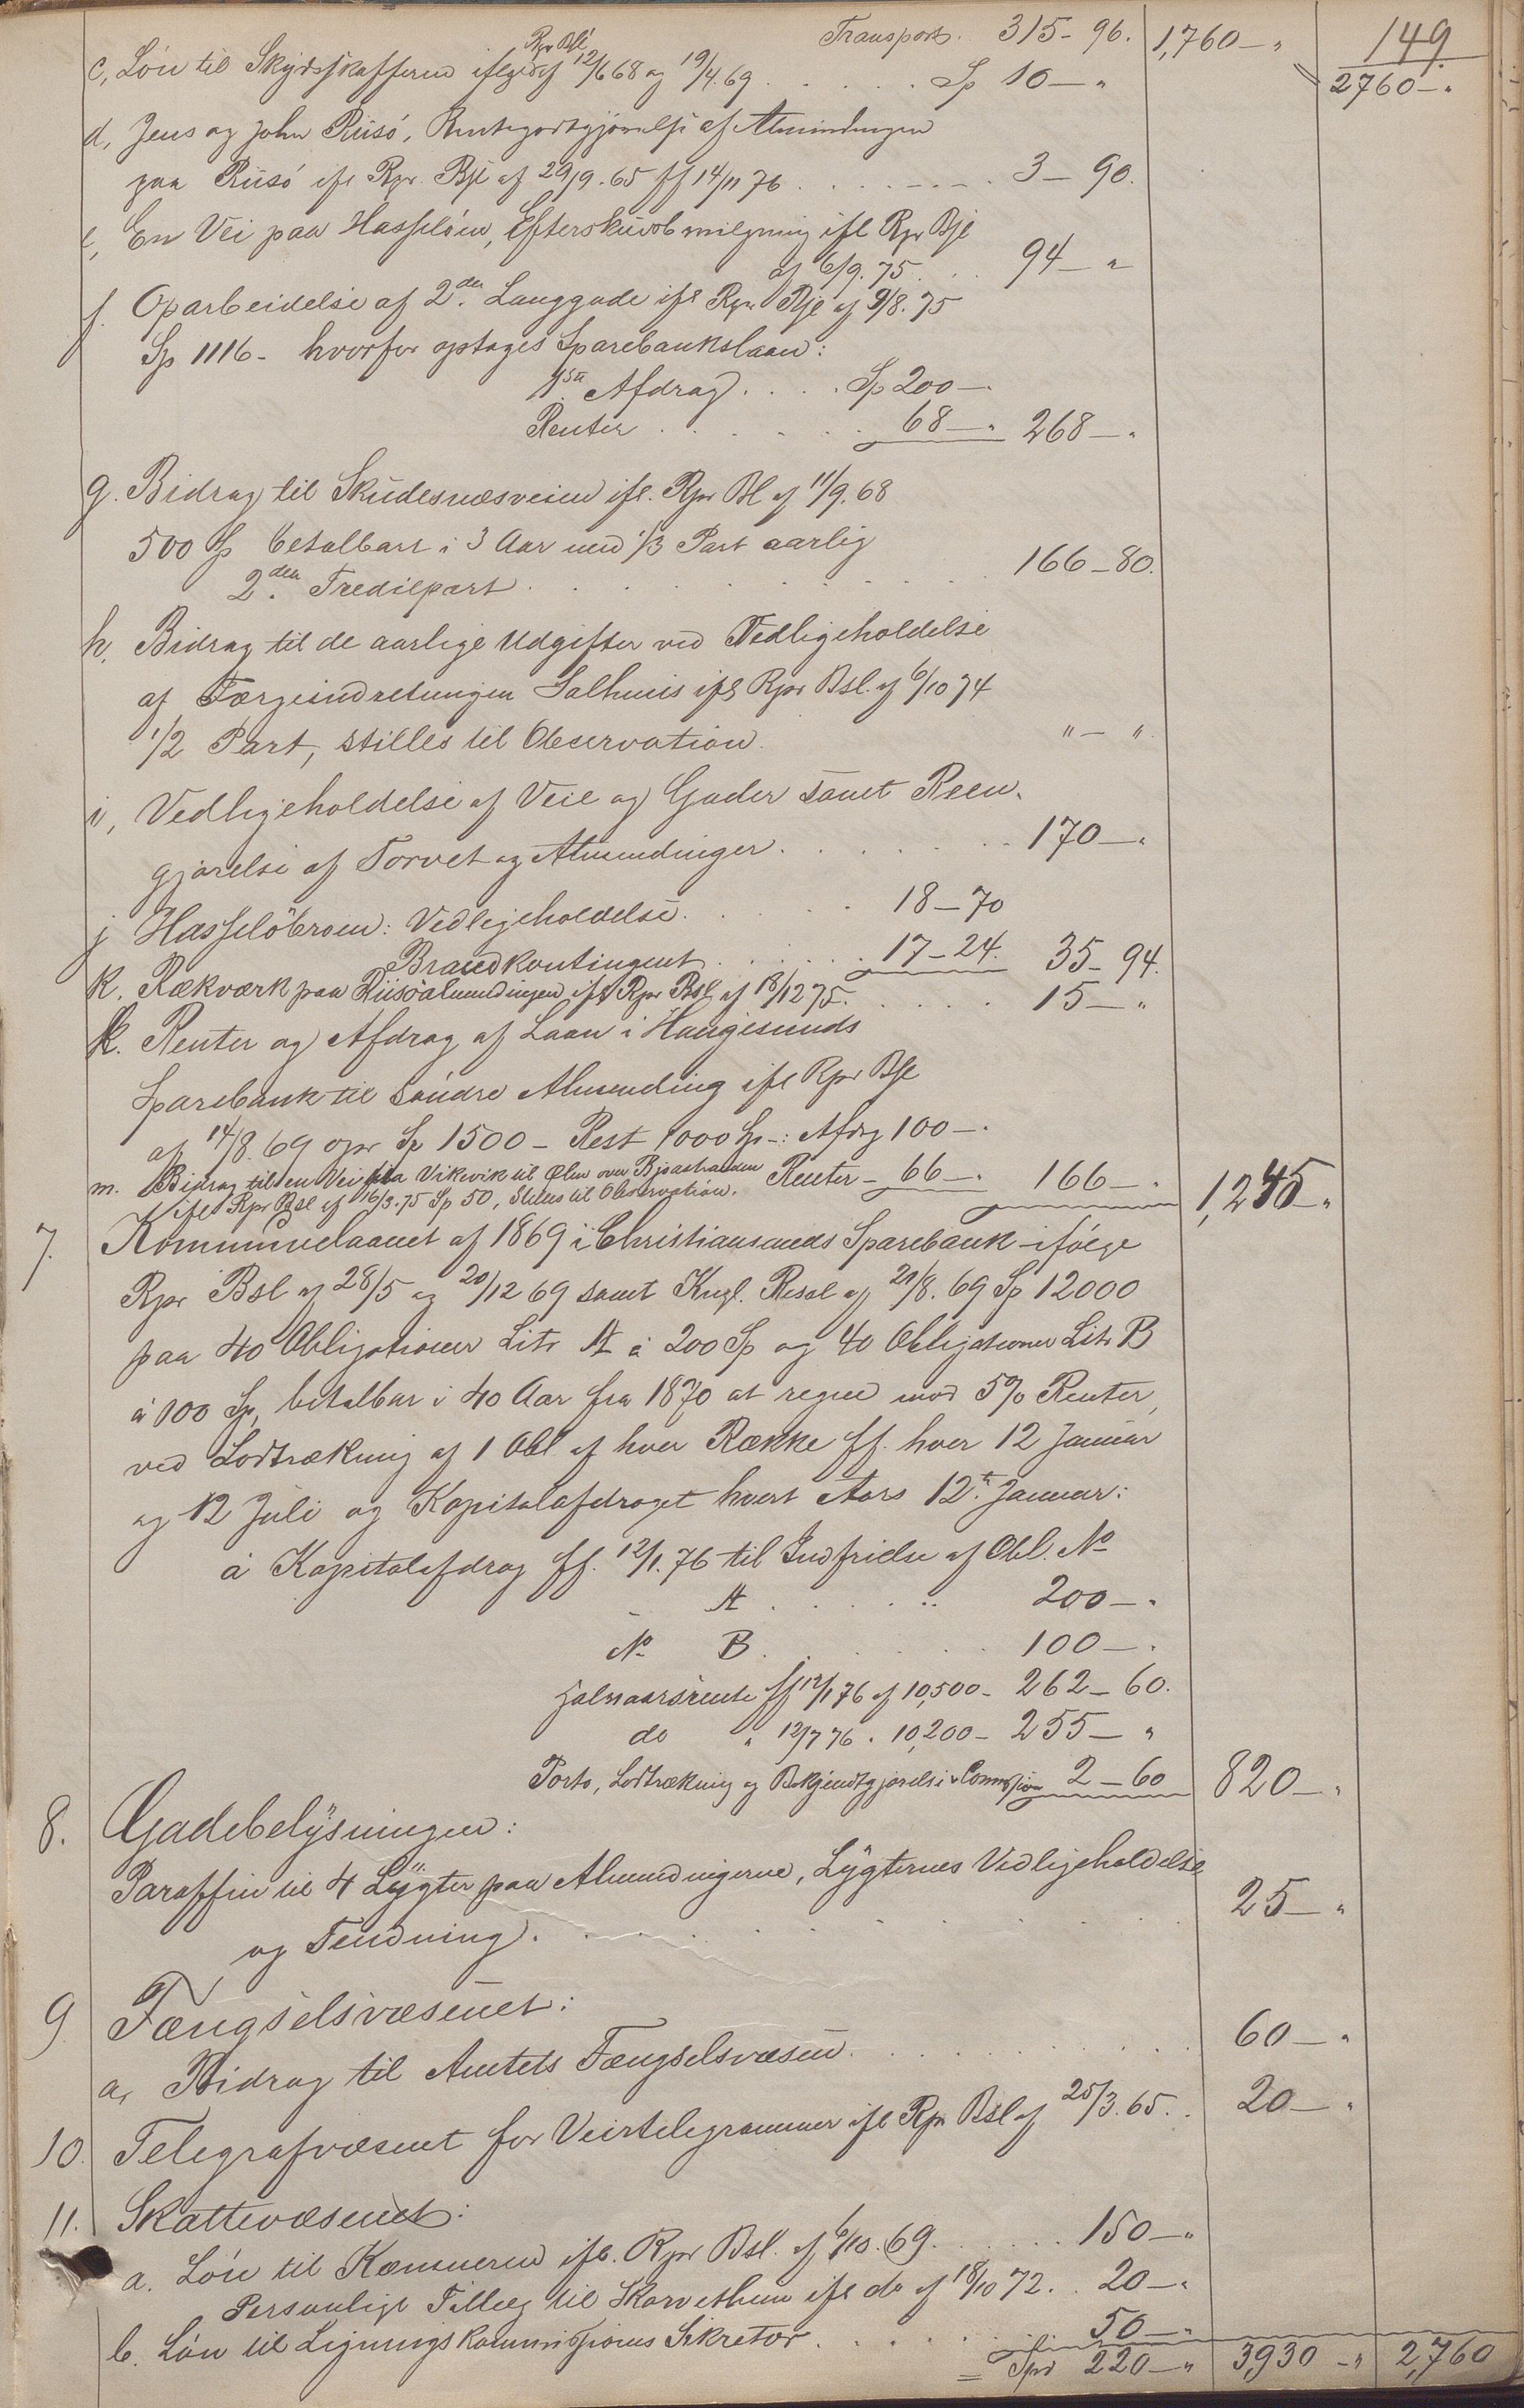 149
Transport. 315 – 96. 1,760 – " 2760 – "
c, Løn til Skydsskafferen ifølge Rpr Bsl af 12/6 68 og 19/4. 69 . . . . . Sp 10 – "
d, Jens og John Risø, Rentegodtgjørelse af Almindingen
paa Risø ifl Rpr. Bsl af 29/9. 65 ff 14/11 76 . . . . . . 3 – 90.
e, En Vei paa Hasseløen, Efterskudsudligning ifl Rpr Bsl
af 6/9. 75 . . . 94 – "
f. Oparbeidelse af 2den Langgade ifl Rpr Bsl af 9/8. 75
Sp 1116 - hvorfor optages Sparebankslaan:
1ste Afdrag . . . . Sp 200 – .
Renter . . . . . . 68 – " 268 – "
g. Bidrag til Skudesnæsveien ifl. Rpr Bl af 11/9. 68
500 Sp betalbart i 3 Aar med 1/3 Part aarlig
2den Trediepart . . . . . . . . 166 – 80.
h, Bidrag til de aarlige Udgifter ved Vedligeholdelse
af Færgeindretningen Salhuus ifl Rpr Bsl. af 6/10 74
1/2 Part, stilles til Observation. " – "
i, Vedligeholdelse af Veie og Gader samt Reen-
gjørelse af Torvet og Almendinger . . . . . . . . 170 – "
j Hasseløbroen: Vedligeholdelse . . . . . 18 – 70
Brandkontingent . . . . . . 17 – 24. 35 – 94.
k. Rækværk paa Riisøalmendingen ifl Rpr Bsl af 18/12 75. . . . . . 15 – "
k. Renter og Afdrag af Laan i Haugesunds
Sparebank til Søndre Almending ifl Rpr Bsl
af 14/8. 69 opr Sp 1500 – Rest 1000 Sp –: Afdg 100 – .
Renter – 66 – . 166 – . 1,245 – "
m. Bidrag til en Vei fra Vikevik til Ølen over Bjoastranden
ifl Rpr Bsl af 16/3. 75 Sp 50, Stilles til Observation.
7. Kommunelaanet af 1869 i Christianssunds Sparebank ifølge
Rpr Bsl af 28/5 og 20/12 69 samt Kngl. Resol af 21/8. 69 Sp 12000
paa 40 Obligationer Litr A à 200 Sp og 40 Obligationer Litr B
à 100 Sp, betalbar i 40 Aar fra 1870 at regne mod 5% Renter,
ved Lodtrækning af 1 Obl af hver Række ff. hver 12 Januar
og 12 Juli og Kapitalafdraget hvert Aars 12te Januar:
à Kapitalafdrag ff. 12/1. 76 til Indfrielse af Obl. No
A . . . . . 200 – "
No B . . . . . . 100 – "
Halvaarsrente ff 12/1 76 af 10,500 – 262 – 60.
do " 12/7 76 " 10,200 – 255 – "
Porto, Lodtrækning og Bekjendtgjørelse & Commission 2 – 60 820 – "
8. Gadebelysningen:
Paraffin til 4 Lygter paa Almendingerne, Lygternes Vedligeholdelse
og Tendning . . . . . . . . . . 25 – "
9 Fængselsvæsenet:
a, Bidrag til Amtets Fængselsvæsen . . . . . . . . . 60 – "
10. Telegrafvæsenet for Veirtelegrammer ifl Rpr Bsl af 25/3. 65. . 20 – "
11. Skattevæsenet:
a. Løn til Kæmneren ifl. Rpr Bsl. af 6/10. 69. . . . . . 150 – "
Personligt Tillæg til Skarvethun ifl do af 18/10 72. . 20 – "
b. Løn til Ligningskommissionens Sekretær . . . . . 50 – "
= Spd 220 – " 3,930 – " 2,760